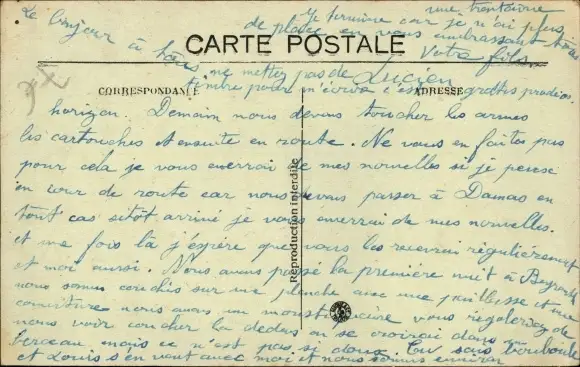 une trentaine
Je termine car je n'ai plus
de place en vous embrassant tous
Le bonjour à tous
Votre fils
Lucien
CARTE POSTALE
ne mettez pas de
timbre pour m'écrire c'est gratis
CORRESPONDANCE
ADRESSE
horizon. Demain nous devons toucher les armes
les cartouches et ensuite en route. Ne vous en faites pas
pour cela je vous enverrai de mes nouvelles si je peux
en cour de route car nous devons passer à Damas en
tout cas sitôt arrivé je vous enverrai de mes nouvelles.
et une fois là j'espère que vous les recevrai régulièrement
et moi aussi. Nous avons passé la première nuit à Beyrouth
nous sommes couchés sur une planche avec une paillasse et une
couverture nous avons un moustiquaire vous rigoleriez de
nous voir coucher là dedans on se croirait dans un
berceau mais ce n'est pas si doux. Tu sais
et Louis s'en vont avec moi et nous sommes environ
Reproduction interdite